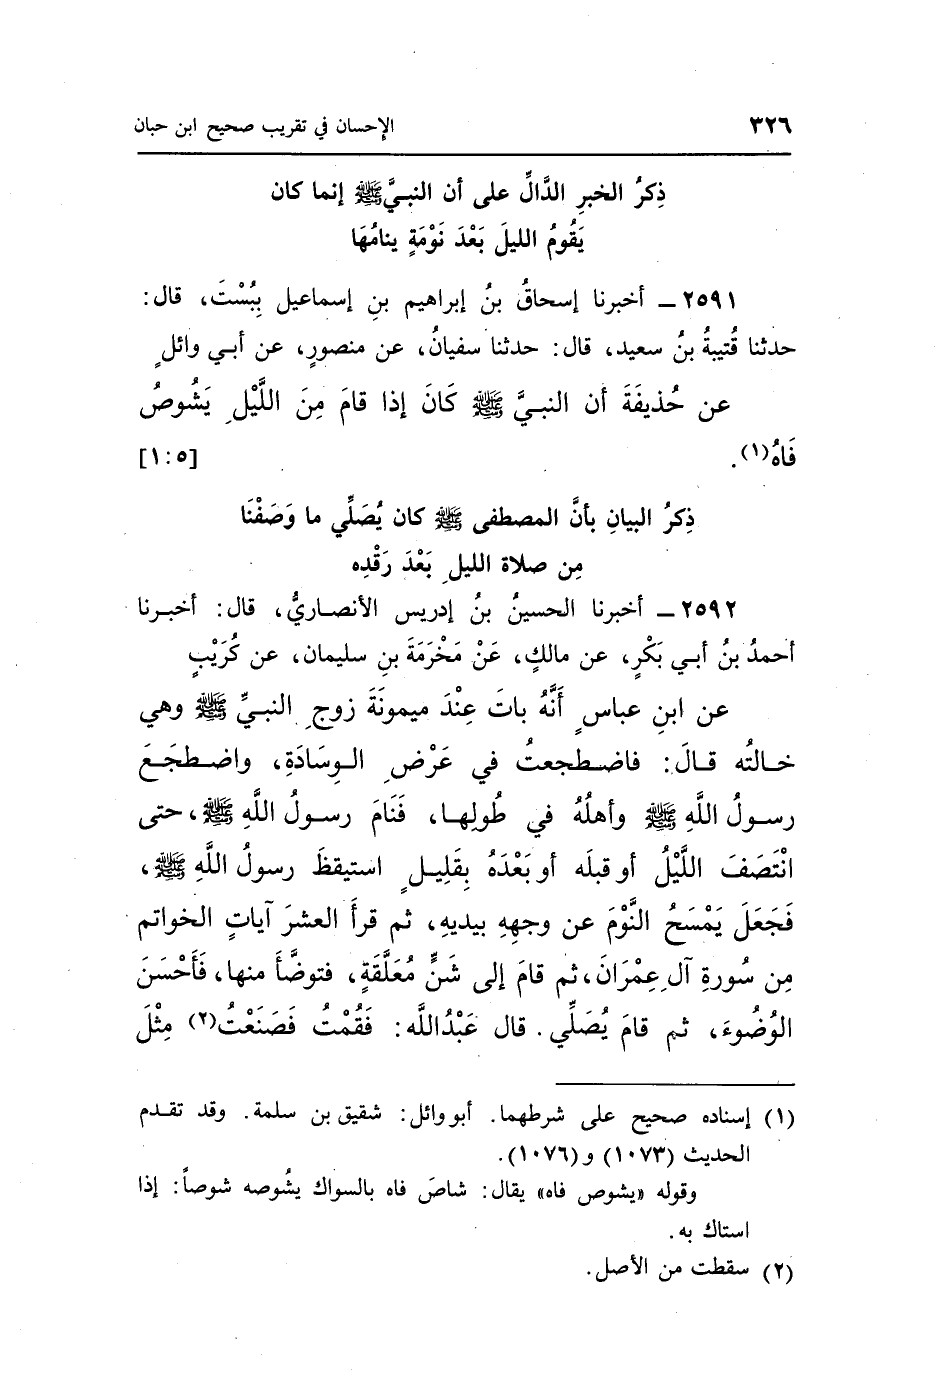 ٣٢٦ الإحسان في تقريب صحيح ابن حبان
ذِكرُ الخبرِ الدَّالِّ على أن النبيَّ ﷺ إنما كان
يَقُومُ الليلَ بَعْدَ نَوْمَةٍ ينامُهَا
٢٥٩١ ـ أخبرنا إسحاقُ بنُ إبراهيم بنِ إسماعيل بِبُسْتَ، قال:
حدثنا قُتيبةُ بنُ سعيد، قال: حدثنا سفيانُ، عن منصورٍ، عن أبي وائلٍ
عن حُذيفَةَ أن النبيَّ ﷺ كَانَ إذا قامَ مِنَ اللَّيْلِ يَشُوصُ
فَاهُ(١). [٥:١]
ذِكرُ البيانِ بأنَّ المصطفى ﷺ كان يُصَلِّي ما وَصَفْنَا
مِن صلاة الليلِ بَعْدَ رَقْدِه
٢٥٩٢ ـ أخبرنا الحسينُ بنُ إدريس الأنصاريُّ، قال: أخبرنا
أحمدُ بنُ أبي بَكْرٍ، عن مالكٍ، عَنْ مَخْرَمَةَ بنِ سليمان، عن كُرَيْبٍ
عن ابنِ عباسٍ أَنَّهُ باتَ عِنْدَ ميمونَةَ زوجِ النبيِّ ﷺ وهي
خالتُه قالَ: فاضطجعتُ في عَرْضِ الوِسَادَةِ، واضطجَعَ
رسولُ اللَّهِ ﷺ وأهلُهُ في طُولِها، فَنَامَ رسولُ اللَّهِ ﷺ، حتى
انْتَصَفَ اللَّيْلُ أو قبلَه أو بَعْدَهُ بِقَلِيلٍ استيقظَ رسولُ اللَّهِ ﷺ،
فَجَعَلَ يَمْسَحُ النَّوْمَ عن وجهِهِ بيديهِ، ثم قرأَ العشرَ آياتٍ الخواتم
مِن سُورةِ آلِ عِمْرَانَ، ثم قامَ إلى شَنٍّ مُعَلَّقَةٍ، فتوضَّأَ منها، فَأَحْسَنَ
الوُضُوءَ، ثم قامَ يُصَلِّي. قال عَبْدُاللَّه: فَقُمْتُ فَصَنَعْتُ(٢) مِثْلَ
(١) إسناده صحيح على شرطهما. أبو وائل: شقيق بن سلمة. وقد تقدم
الحديث (١٠٧٣) و(١٠٧٦).
وقوله «يشوص فاه» يقال: شاصَ فاه بالسواك يشُوصه شوصاً: إذا
استاك به.
(٢) سقطت من الأصل.